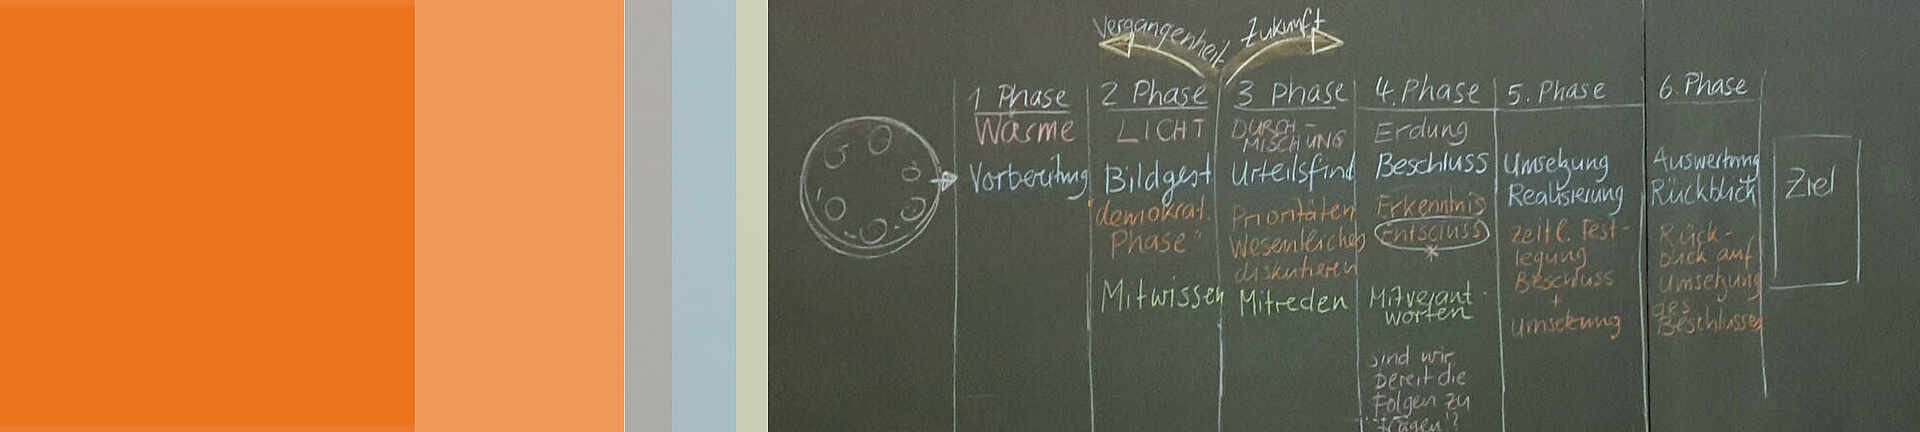 Vergangenheit
Zukunft
1 Phase
Wärme
Vorbereitung
2 Phase
LICHT
Bildgest
"demokrat.
Phase"
Mitwissen
3 Phase
DURCH-
MISCHUNG
Urteilsfind
Prioritäten
Wesentliches
diskutieren
Mitreden
4. Phase
Erdung
Beschluss
Erkenntnis
Entscluss
*
Mitverant-
worten
sind wir
bereit die
Folgen zu
tragen"?
5. Phase
Umsetzung
Realisierung
zeitl. Fest-
legung
Beschluss
+
Umsetzung
6. Phase
Auswertung
Rückblick
Rück-
blick auf
Umsetzung
des
Beschlusses
Ziel